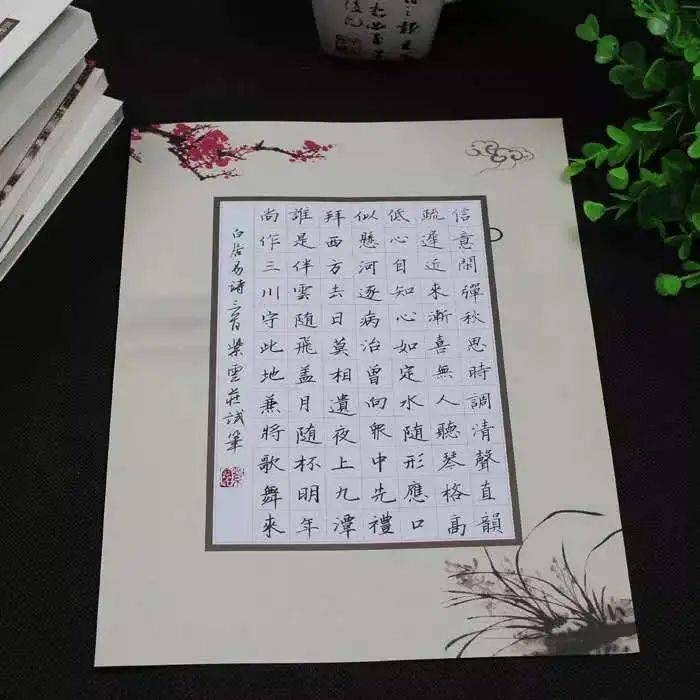 信意閑彈秋思時調清聲直韻
疏遲近來漸喜無人聽琴格高
低心自知心如定水隨形應口
似懸河逐病治曾向眾中先禮
拜西方去日莫相遺夜上九潭
誰是伴雲隨飛蓋月隨杯明年
尚作三川守此地兼將歌舞來
白居易詩三首 紫雲莊試筆